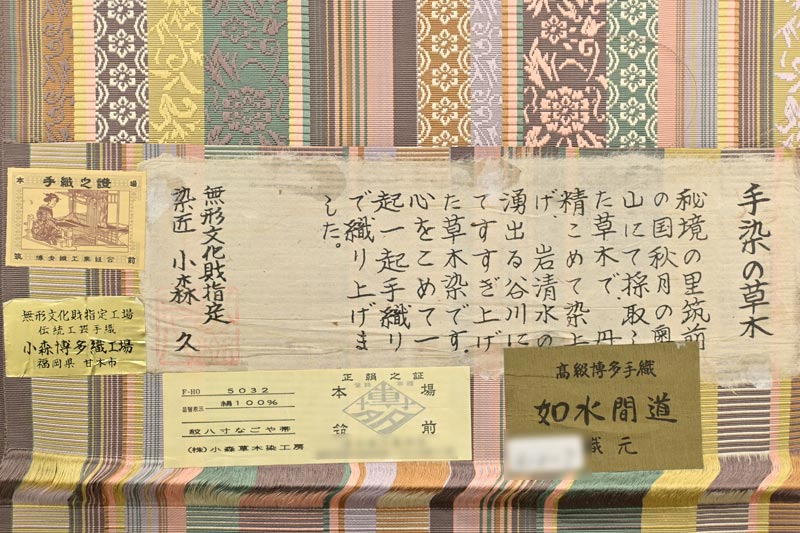 手染の草木
秘境の里筑前
の国秋月の奥
山にて採取し
た草木で、丹
精こめて染上
げ、岩清水の
湧出る谷川に
てすすぎ上げ
た草木染です。
心をこめて一
起一起手織り
で織り上げま
した。
無形文化財指定
染匠 小森 久
本 場
手織之證
博多織工業組合
筑 前
無形文化財指定工場
伝統工芸手織
小森博多織工場
福岡県 甘木市
F-HO 5032
絹100%
紋八寸なごや帯
(株)小森草木染工房
正韻之証
本 場
博多
筑 前
高級博多手織
如水間道
織元